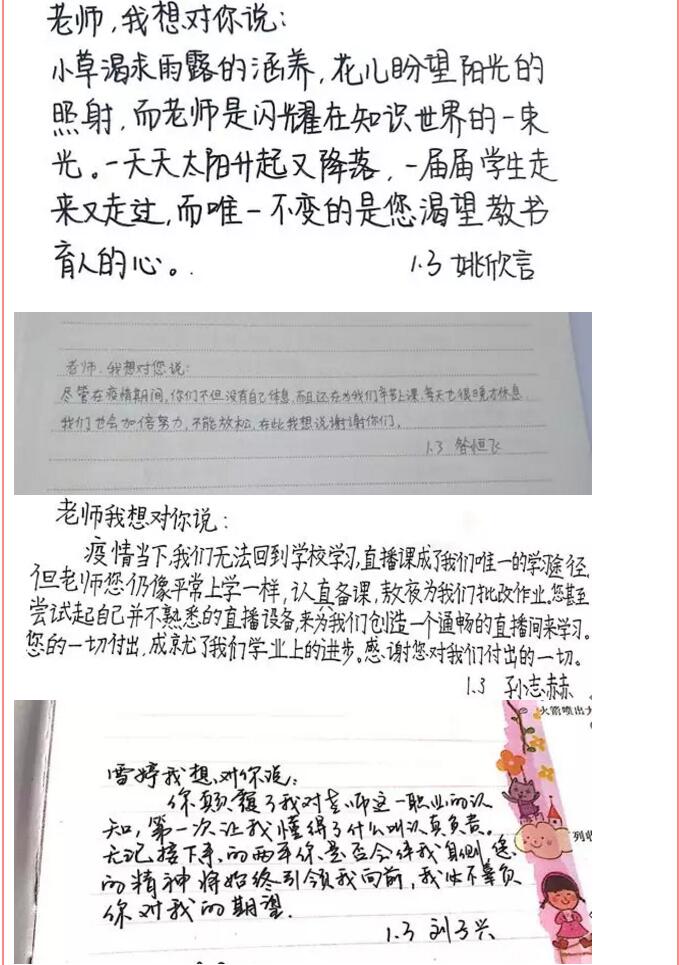 老师,我想对你说:
小草渴求雨露的涵养,花儿盼望阳光的
照射,而老师是闪耀在知识世界的一束
光。一天天太阳升起又降落,一届届学生走
来又走过,而唯一不变的是您渴望教书
育人的心。
1.3 姚欣言
老师,我想对您说:
尽管在疫情期间,你们不但没有自己休息,而且还在为我们辛苦上课,每天也很晚才休息,
我们也会加倍努力,不能放松,在此我想说谢谢你们。
1.3 昝恒飞
老师我想对你说:
疫情当下,我们无法回到学校学习,直播课成了我们唯一的学习途径,
但老师您仍像平常上学一样,认真备课,熬夜为我们批改作业。您甚至
尝试起自己并不熟悉的直播设备,来为我们创造一个通畅的直播间来学习。
您的一切付出,成就了我们学业上的进步。感谢您对我们付出的一切。
1.3 孙志赫
火箭喷出
雪婷我想对你说:
你颠覆了我对老师这一职业的认
知,第一次让我懂得了什么叫认真负责。
无论接下来的两年你是否会伴我身侧,您
的精神将始终引领我向前,我必不辜负
你对我的期望.
1.3 刘子兴